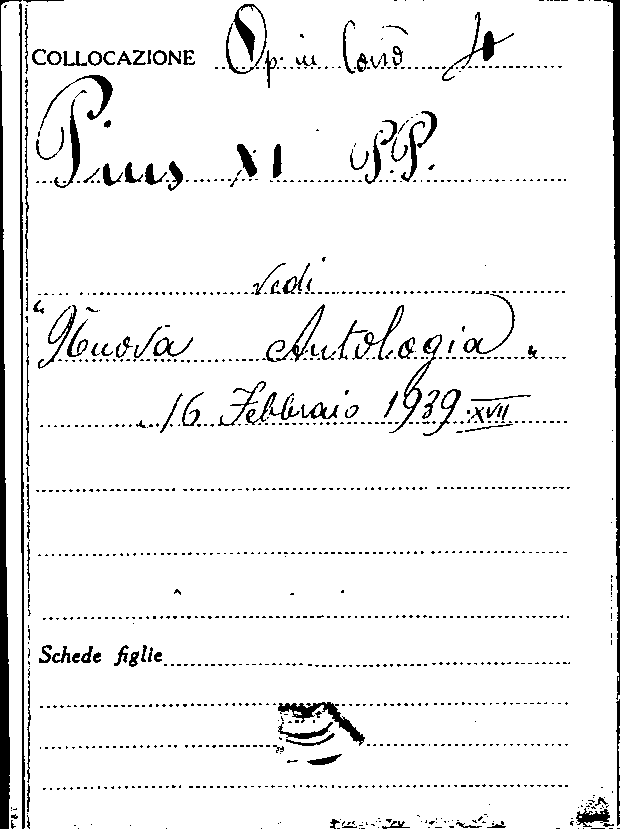 COLLOCAZIONE Op. in Corso
Pius XI P.P.
vedi
"Nuova Antologia"
16 Febbraio 1939 XVII
Schede figlie